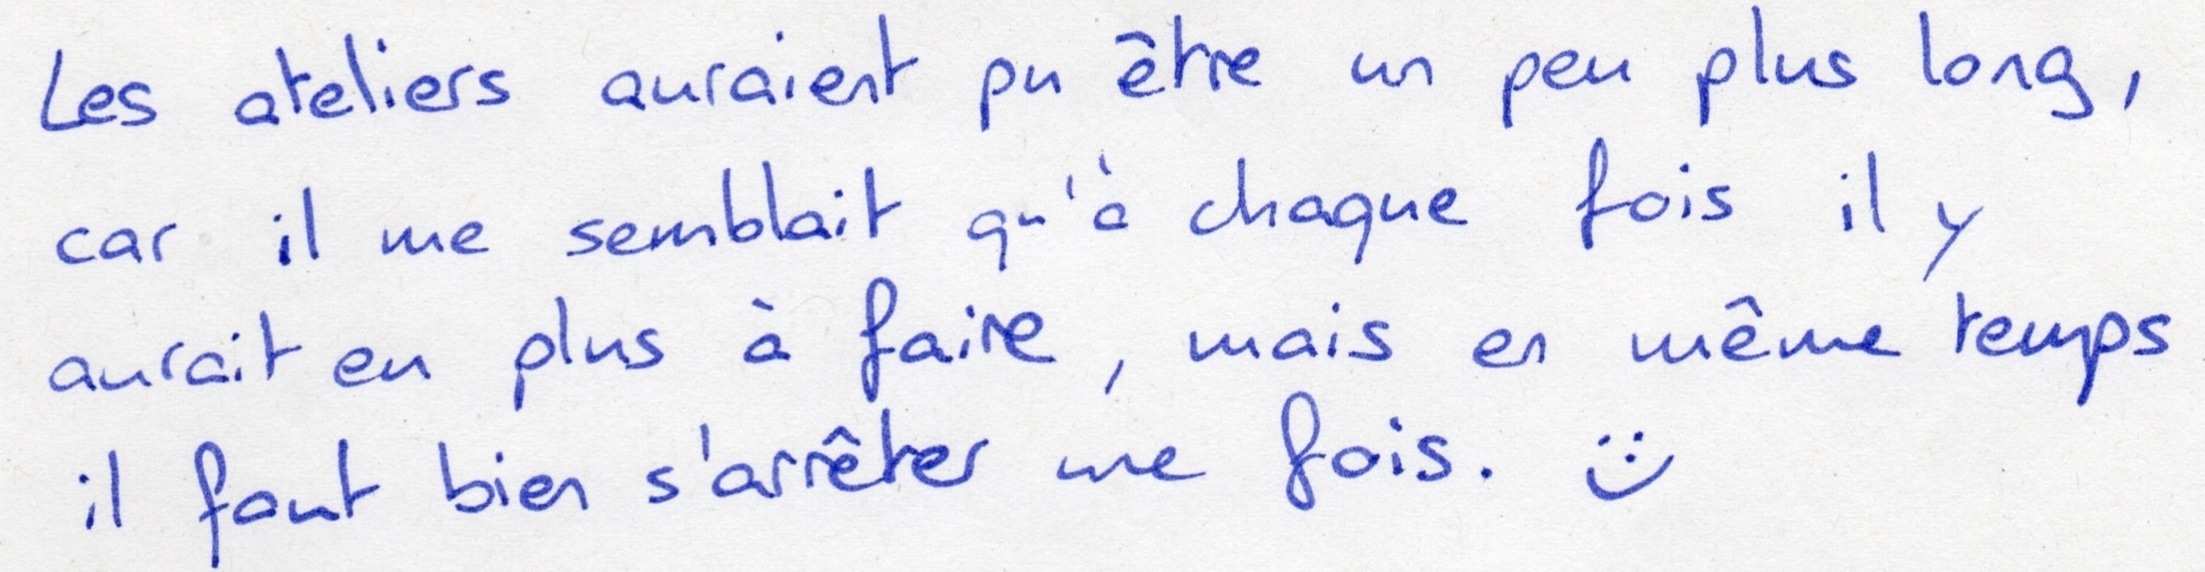 Les ateliers auraient pu être un peu plus long,
car il me semblait qu'à chaque fois il y
aurait eu plus à faire, mais en même temps
il faut bien s'arrêter une fois. :)